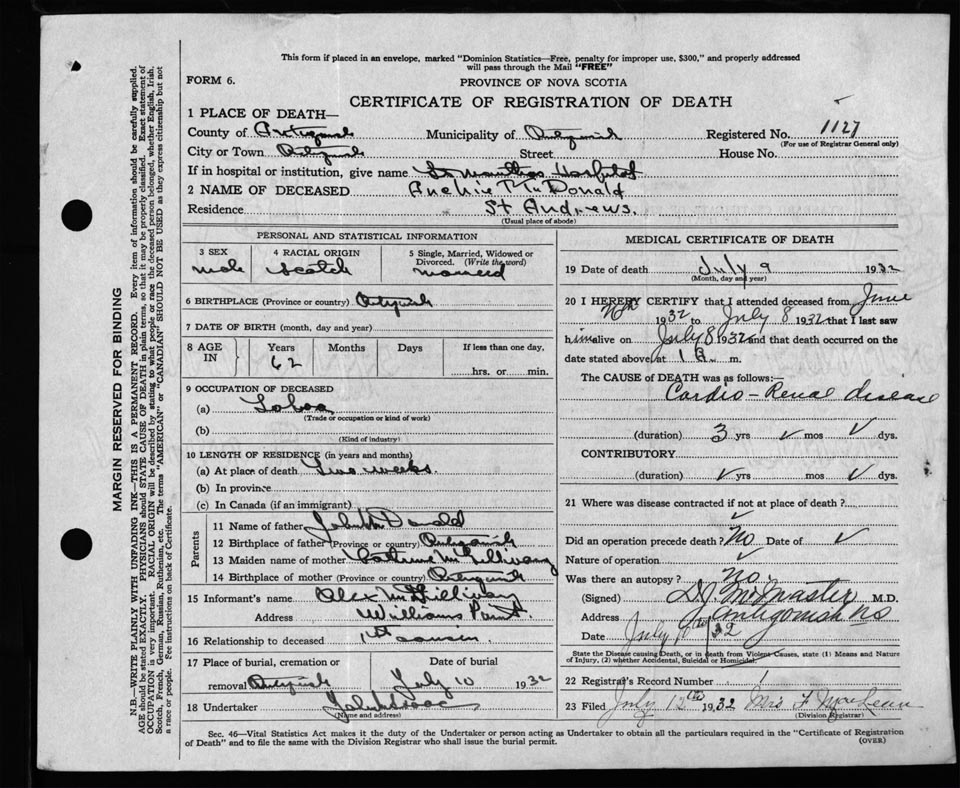 This form if placed in an envelope, marked "Dominion Statistics—Free, penalty for improper use, $300," and properly addressed
will pass through the Mail "FREE"
FORM 6.
PROVINCE OF NOVA SCOTIA
CERTIFICATE OF REGISTRATION OF DEATH
1 PLACE OF DEATH—
County of Antigonish Municipality of Antigonish Registered No. 1127
(For use of Registrar General only)
City or Town Antigonish Street House No.
If in hospital or institution, give name St Marthas Hospital
2 NAME OF DECEASED Archie McDonald
Residence St Andrews.
(Usual place of abode)
PERSONAL AND STATISTICAL INFORMATION
3 SEX 4 RACIAL ORIGIN 5 Single, Married, Widowed or
Divorced. (Write the word)
male Scotch married
6 BIRTHPLACE (Province or country) Antigonish
7 DATE OF BIRTH (month, day and year)
8 AGE IN Years Months Days If less than one day,
62 hrs. or min.
9 OCCUPATION OF DECEASED
(a)
(Trade or occupation or kind of work)
(b)
(Kind of industry)
10 LENGTH OF RESIDENCE (in years and months)
(a) At place of death Two weeks.
(b) In province
(c) In Canada (if an immigrant)
Parents
11 Name of father John McDonald
12 Birthplace of father (Province or country) Antigonish
13 Maiden name of mother Catherine McGillivary
14 Birthplace of mother (Province or country) Antigonish
15 Informant's name Alex McGillivary
Address Williams Point
16 Relationship to deceased 1st cousin
17 Place of burial, cremation or Date of burial
removal Antigonish July 10 1932
18 Undertaker
(Name and address)
MEDICAL CERTIFICATE OF DEATH
19 Date of death July 9 1932
(Month, day and year)
20 I HEREBY CERTIFY that I attended deceased from June
1932 to July 8 1932 that I last saw
him alive on July 8 1932 and that death occurred on the
date stated above, at 1 a. m.
The CAUSE OF DEATH was as follows:—
Cardio-Renal disease
(duration) 3 yrs ✓ mos ✓ dys.
CONTRIBUTORY
(duration) ✓ yrs ✓ mos ✓ dys.
21 Where was disease contracted if not at place of death?
✓
Did an operation precede death? No Date of ✓
Nature of operation ✓
Was there an autopsy? no.
(Signed) McMaster M.D.
Address Antigonish NS
Date July 10th/32
State the Disease causing Death, or in death from Violent Causes, state (1) Means and Nature
of Injury, (2) whether Accidental, Suicidal or Homicidal.
22 Registrar's Record Number 1
23 Filed July 12th 1932 Mrs F MacLean
(Division Registrar)
Sec. 46—Vital Statistics Act makes it the duty of the Undertaker or person acting as Undertaker to obtain all the particulars required in the "Certificate of Registration
of Death" and to file the same with the Division Registrar who shall issue the burial permit.
(OVER)
MARGIN RESERVED FOR BINDING
N.B.—WRITE PLAINLY WITH UNFADING INK—THIS IS A PERMANENT RECORD. Every item of information should be carefully supplied.
AGE should be stated EXACTLY. PHYSICIANS should STATE CAUSE OF DEATH in plain terms, so that it may be properly classified. Exact statement of
OCCUPATION is very important. RACIAL ORIGIN will be described by stating to what people or race the deceased person belonged, whether English, Irish,
Scotch, French, German, Russian, Ruthenian, etc. The terms "AMERICAN" or "CANADIAN" SHOULD NOT BE USED as they express citizenship but not
a race or people. See instructions on back of Certificate.